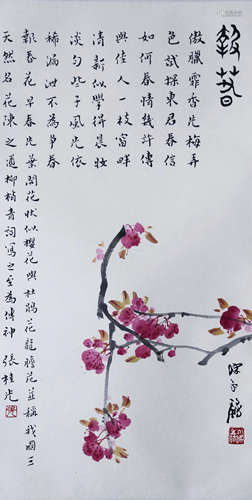 報春
傲臘霏香先梅弄
色試探東君春信
如何春情幾許傳
與佳人一枝富畔
清新似學得晨妝
淡勻些子風光依
稀漏泄不為爭春
報春花早春先葉開花狀似櫻花與杜鵑花龍膽花並稱我國三
天然名花陳之適柳梢青詞寫之至為傳神 張桂光